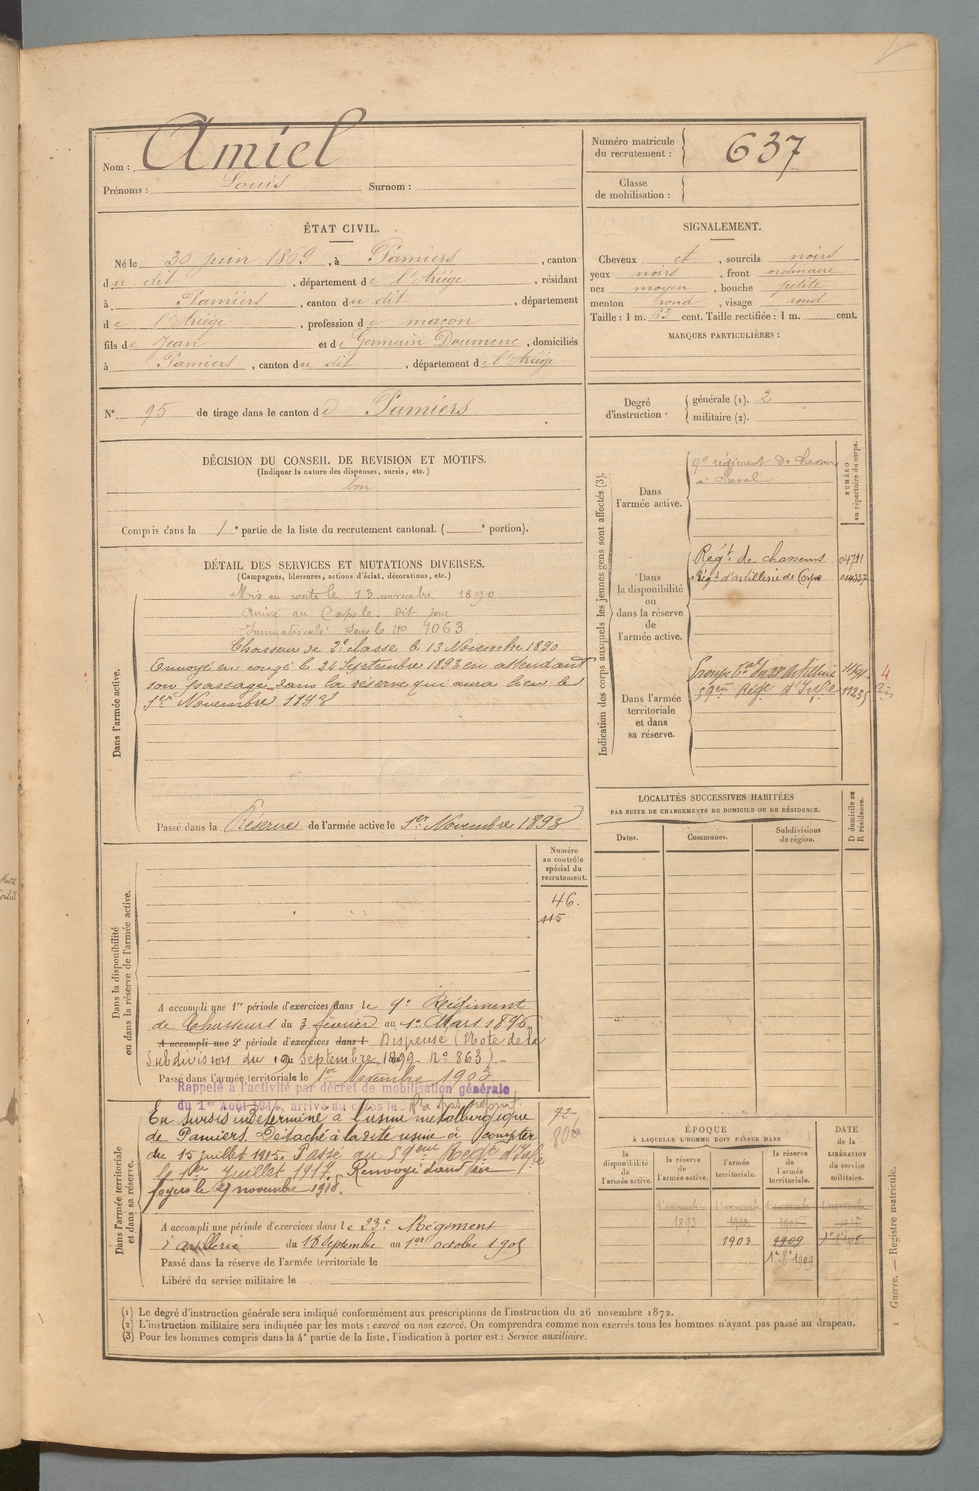 Nom : Amiel
Prénoms : Louis Surnom :
Numéro matricule du recrutement : 637
Classe de mobilisation :
ÉTAT CIVIL.
Né le 30 juin 1869, à Pamiers, canton
du dit, département de l'Ariège, résidant
à Pamiers, canton du dit, département
de l'Ariège, profession de maçon
fils de Jean et de Germain Doumenc, domiciliés
à Pamiers, canton du dit, département de l'Ariège
N° 95 de tirage dans le canton de Pamiers
SIGNALEMENT.
Cheveux et, sourcils noirs
yeux noirs, front ordinaire
nez moyen, bouche petite
menton rond, visage rond
Taille : 1 m. 63 cent. Taille rectifiée : 1 m. cent.
MARQUES PARTICULIÈRES :
Degré d'instruction :
générale (1). 2
militaire (2).
DÉCISION DU CONSEIL DE REVISION ET MOTIFS.
(Indiquer la nature des dispenses, sursis, etc.)
bon
Compris dans la 1e partie de la liste du recrutement cantonal. ( e portion).
DÉTAIL DES SERVICES ET MUTATIONS DIVERSES.
(Campagnes, blessures, actions d'éclat, décorations, etc.)
Dans l'armée active.
Mis en route le 13 novembre 1890
Arrivé au Corps le dit jour
Immatriculé sous le no 4063
Chasseur de 2e classe le 13 Novembre 1890
Envoyé en congé le 24 Septembre 1893 en attendant
son passage dans la réserve qui aura lieu le
1er Novembre 1893
Passé dans la Réserve de l'armée active le 1er Novembre 1893
Indication des corps auxquels les jeunes gens sont affectés (3).
NUMÉRO au répertoire du corps.
Dans l'armée active.
9e régiment de chasseurs
à cheval
Dans la disponibilité ou dans la réserve de l'armée active.
Régt de chasseurs
Régt d'artillerie de Corps
Dans l'armée territoriale et dans sa réserve.
59ème Régt d'Infie
LOCALITÉS SUCCESSIVES HABITÉES
PAR SUITE DE CHANGEMENTS DE DOMICILE OU DE RÉSIDENCE.
D domicile ou R résidence.
Dates. Communes. Subdivisions de région.
Dans la disponibilité ou dans la réserve de l'armée active.
Numéro au contrôle spécial du recrutement.
46.
115
A accompli une 1re période d'exercices dans le 9e Régiment
de Chasseurs du 3 février au 1er Mars 1896
A accompli une 2e période d'exercices dans l Dispensé (Note de la
Subdivision du 19 Septembre 1899 - No 863) -
Passé dans l'armée territoriale le 1er Novembre 1903
Rappelé à l'activité par décret de mobilisation générale
du 1er Août 1914, arrivé au corps le N'a pas rejoint.
Dans l'armée territoriale et dans sa réserve.
En sursis indéterminé à l'usine métallurgique
de Pamiers. Détaché à la dite usine à compter
du 15 juillet 1915. Passé au 59ème Régt d'Infie
le 1er Juillet 1917. Renvoyé dans ses
foyers le 27 novembre 1918.
72
806
A accompli une période d'exercices dans le 23e Régiment
d'artillerie du 18 Septembre au 1er octobre 1905
Passé dans la réserve de l'armée territoriale le
Libéré du service militaire le
ÉPOQUE
À LAQUELLE L'HOMME DOIT PASSER DANS
DATE de la LIBÉRATION du service militaire.
la disponibilité de l'armée active.
la réserve de l'armée active.
l'armée territoriale.
la réserve de l'armée territoriale.
1 novembre 1 novembre 1 novembre 1 novembre
1893
1903 1909
1er 8bre 1909
(1) Le degré d'instruction générale sera indiqué conformément aux prescriptions de l'instruction du 26 novembre 1872.
(2) L'instruction militaire sera indiquée par les mots : exercé ou non exercé. On comprendra comme non exercés tous les hommes n'ayant pas passé au drapeau.
(3) Pour les hommes compris dans la 4e partie de la liste, l'indication à porter est : Service auxiliaire.
Guerre. — Registre matricule.